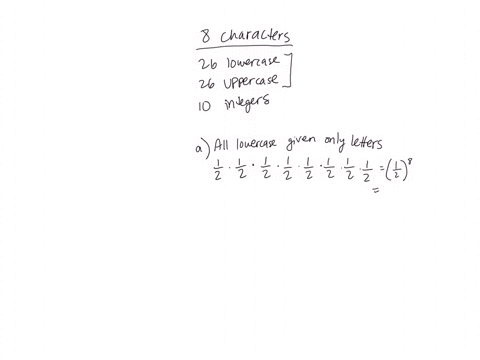 8 characters
26 lowercase
26 uppercase
10 integers
a) All lowercase given only letters
1/2 · 1/2 · 1/2 · 1/2 · 1/2 · 1/2 · 1/2 · 1/2 = (1/2)^8
=